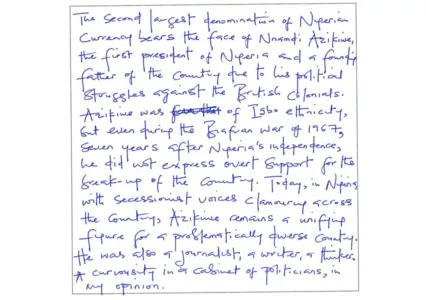 The second largest denomination of Nigerian
Currency bears the face of Nnamdi Azikiwe,
the first president of Nigeria and a founding
father of the country due to his political
struggles against the British Colonials.
Azikiwe was of Igbo ethnicity,
but even during the Biafran war of 1967,
seven years after Nigeria's independence,
he did not express overt support for the
break-up of the country. Today, in Nigeria
with secessionist voices clamouring across
the country, Azikiwe remains a unifying
figure for a problematically diverse country.
He was also a journalist, a writer, a thinker.
A curiousity in a cabinet of politicians, in
my opinion.